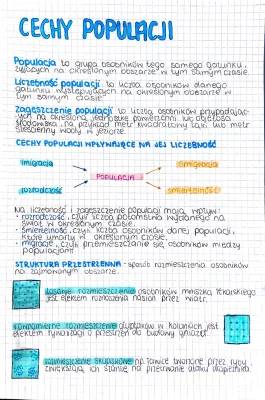 CECHY POPULACJI
Populacja to grupa osobników tego samego gatunku,
żyjących na określonym obszarze w tym samym czasie.
Liczebność populacji to liczba osobników danego
gatunku występujących na określonym obszarze w
tym samym czasie.
Zagęszczenie populacji to liczba osobników przypadając-
ych na określoną jednostkę powierzchni lub objętości
środowiska, na przykład metr kwadratowy łąki lub metr
sześcienny wody w jeziorze.
CECHY POPULACJI WPŁYWAJĄCE NA JEJ LICZEBNOŚĆ
imigracja
emigracja
POPULACJA
rozrodczość
śmiertelność
Na liczebność i zagęszczenie populacji mają wpływ:
• rozrodczość, czyli liczba potomstwa wydanego na
świat w określonym czasie,
• śmiertelność, czyli liczba osobników danej populacji,
które umarły w określonym czasie,
• migracje, czyli przemieszczanie się osobników między
populacjami.
STRUKTURA PRZESTRZENNA - sposób rozmieszczenia osobników
na zajmowanym obszarze.
losowe rozmieszczenie osobników mniszka lekarskiego
jest efektem roznoszenia nasion przez wiatr.
równomierne rozmieszczenie głuptaków w koloniach jest
efektem rywalizacji o przestrzeń do budowy gniazd.
rozmieszczenie skupiskowe na ławice tworzone przez ryby
zwiększają ich szanse na przetrwanie ataku drapieżnika.